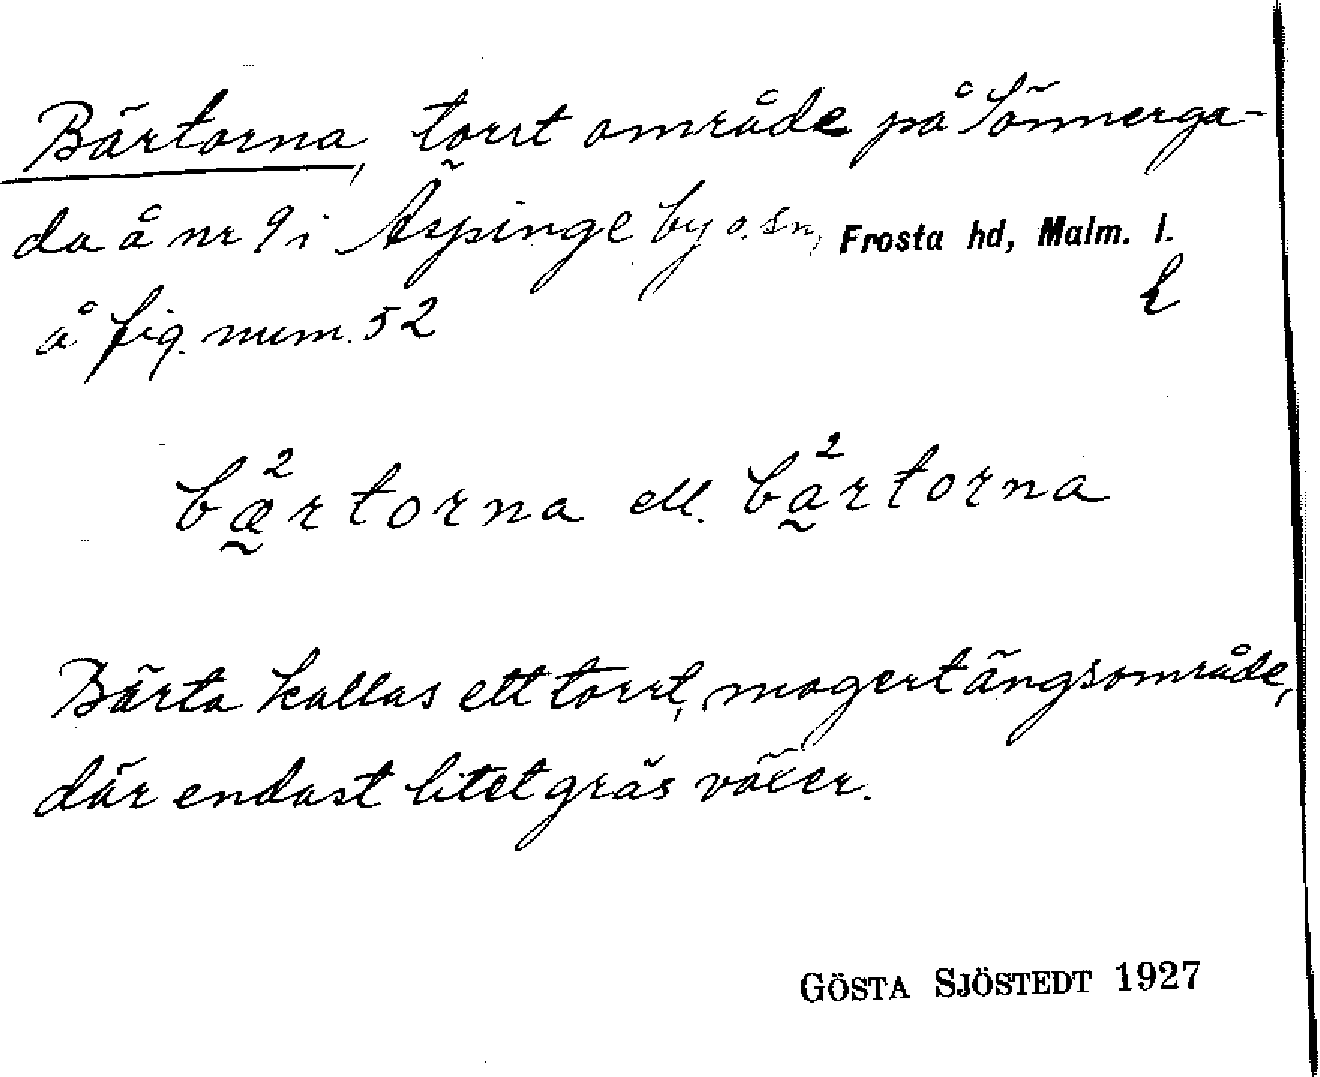 Bärtorna, torrt område på Sönnerga-
da å nr 9 i Äspinge by o. sn, Frosta hd, Malm. l.
å fig. num. 52
bæ²rtorna ell. ba²rtorna
Bärta kallas ett torrt, magert ängsområde,
där endast litet gräs växer.
GÖSTA SJÖSTEDT 1927